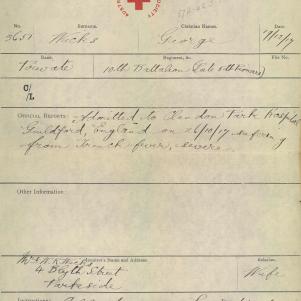 No.
Surname.
Christian Names.
Date.
3651
Wicks
George
7/12/17
Rank.
Regiment, &c.
File No.
Private
10th Battalion (Late 6th Pioneers)
C/L
OFFICIAL REPORTS: Admitted to Clandon Park Hospital
Guildford, England on 26/10/17 suffering
from Trench fever, severe.
Other Information:
Enquirer's Name and Address.
Relation.
Mrs W. R. Wicks
4 Blyth Street
Parkside
Wife
Instructions: